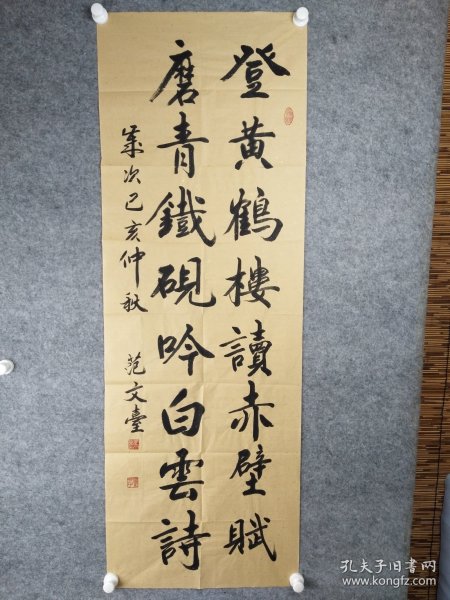 登黄鶴樓讀赤壁賦
磨青鐵硯吟白雲詩
歲次己亥仲秋
范文臺
孔夫子旧书网
www.kongfz.com